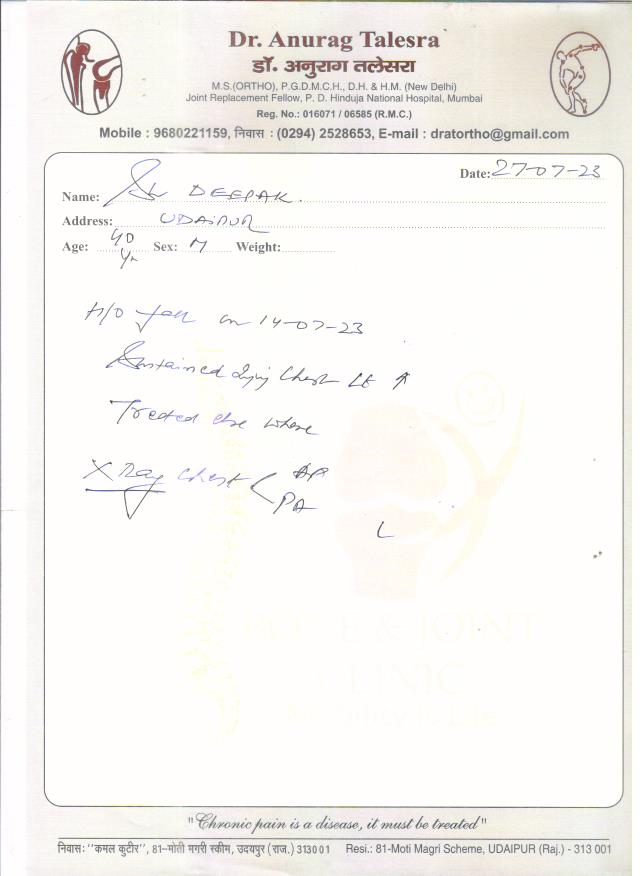 Dr. Anurag Talesra
डॉ. अनुराग तलेसरा
M.S.(ORTHO), P.G.D.M.C.H., D.H. & H.M. (New Delhi)
Joint Replacement Fellow, P. D. Hinduja National Hospital, Mumbai
Reg. No.: 016071 / 06585 (R.M.C.)
Mobile : 9680221159, निवास : (0294) 2528653, E-mail : dratortho@gmail.com
Date: 27-07-23
Name: DEEPAK.
Address: UDAIPUR
Age: 40 Yr Sex: M Weight:
H/O fall on 14-07-23
Sustained injury Chest Lt
Treated else where
X Ray Chest < AP
PA
L
BONE & JOINT
CLINIC
Mobility is Life
"Chronic pain is a disease, it must be treated"
निवास: "कमल कुटीर", 81-मोती मगरी स्कीम, उदयपुर (राज.) 313001 Resi.: 81-Moti Magri Scheme, UDAIPUR (Raj.) - 313 001